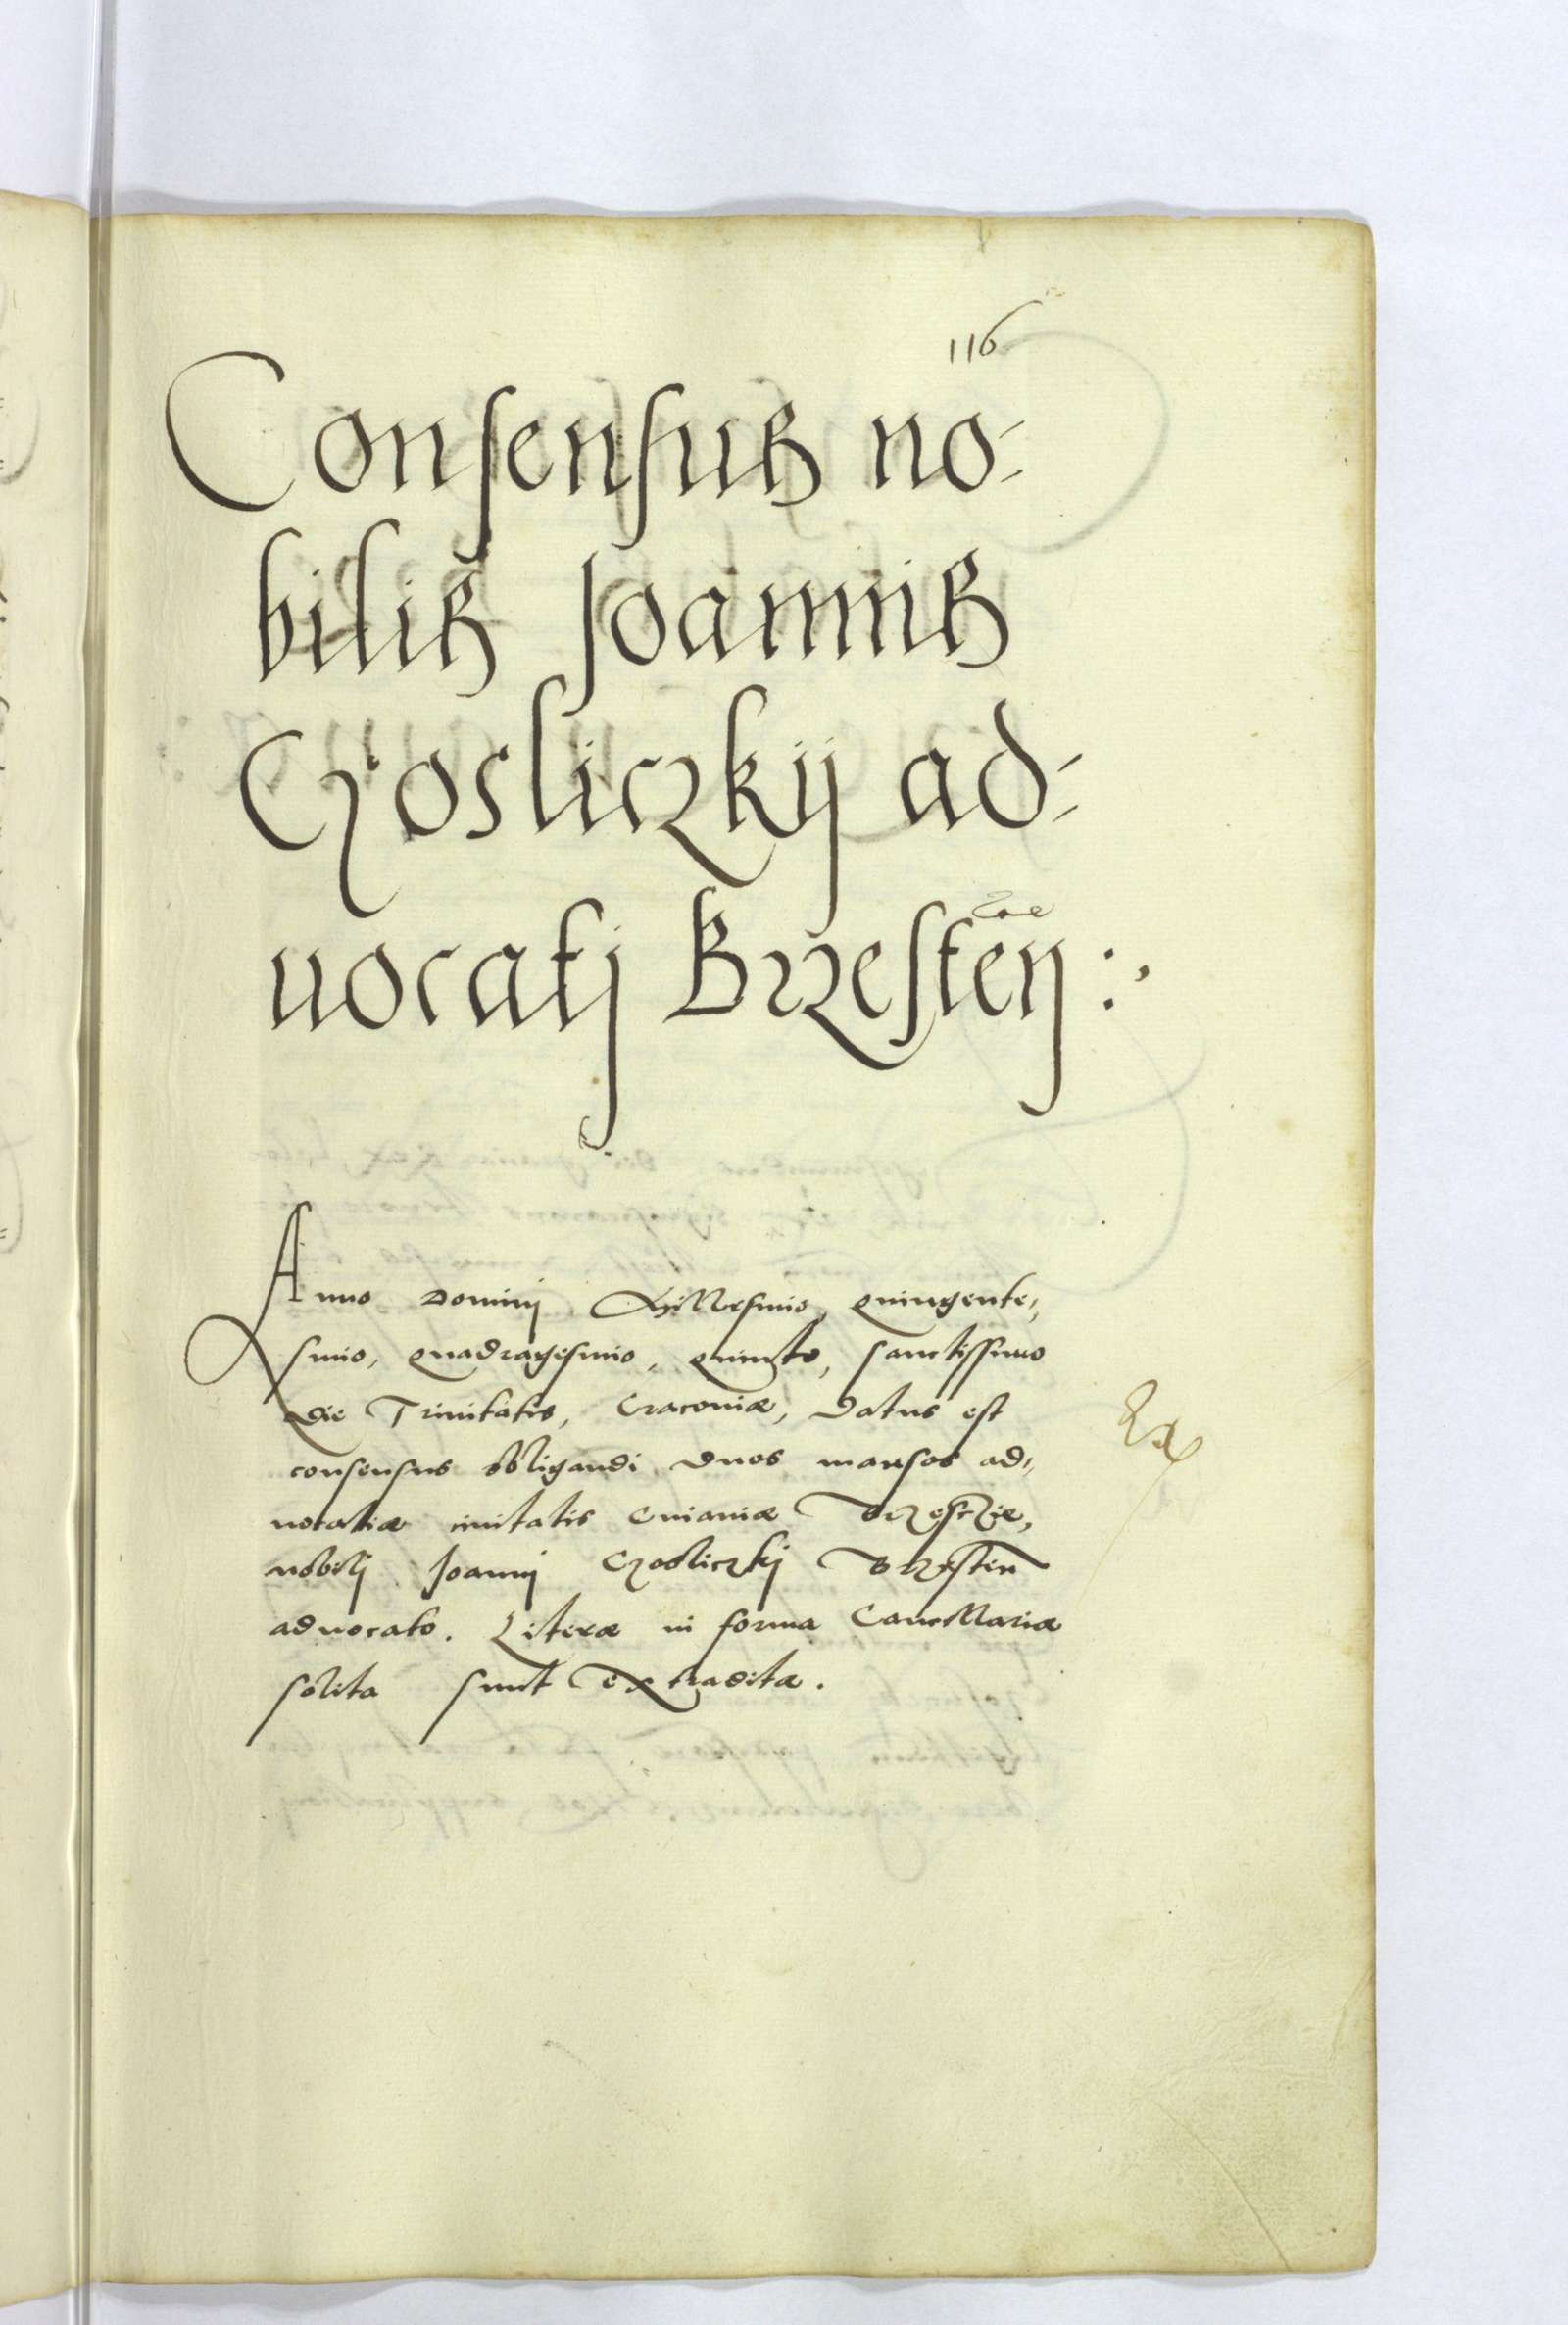 116
Consensus no-
bilis Joannis
Czosliczkij ad-
uocatj Brzesten:
Anno Dominj Millesimo, quingente,,
simo, quadragesimo, quinto, sanctissimo
die Trinitatis, Cracoviæ, Datus est
consensus obligandi duos mansos ad,,
uocatiæ ciuitatis Cuiaviæ Brzesczie,
nobilj Joannj Czosliczkj Brzesten
aduocato. Literæ in forma Cancellariæ
solita sunt extraditæ.
Ex